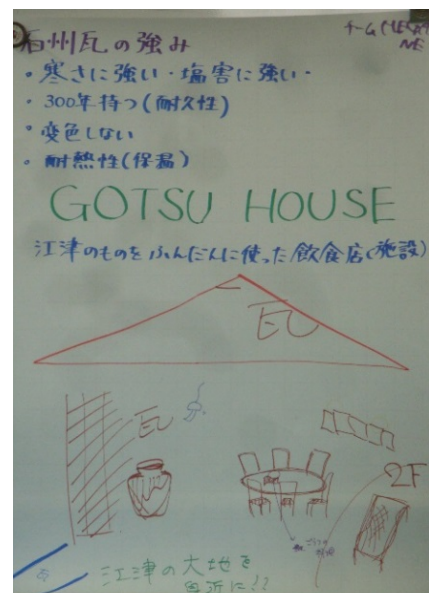 石州瓦の強み
チーム(MEGA
NE
・寒さに強い・塩害に強い・
・300年持つ(耐久性)
・変色しない
・耐熱性(保温)
GOTSU HOUSE
江津のものをふんだんに使った飲食店(施設)
瓦
瓦
2F
江津の大地を
身近に!!